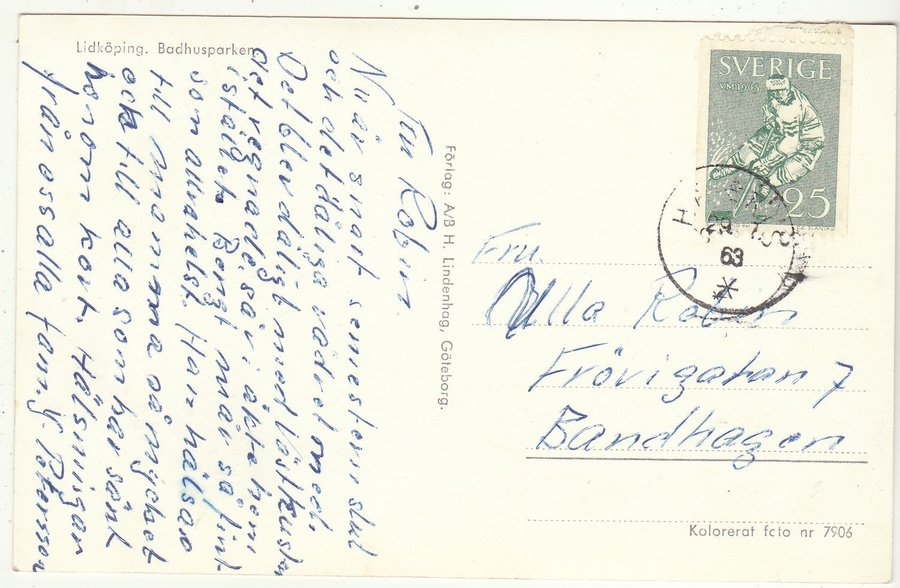 Lidköping. Badhusparken.
Fru Robin.
Nu är snart semestern slut
och det dåliga vädret med.
Det blev dåligt med Västkusten
det regnade, så vi åkte hem
istället. Bengt mår så fint
som allra helst. Han hälsar
till mamma så mycket
och till alla som har sänt
honom kort. Hälsningar
från oss alla fam. Y. Petersson
Förlag: A/B H. Lindenhag, Göteborg.
SVERIGE
VM 1963
25
63
Fru.
Ulla Robin
Frövigatan 7
Bandhagen
Kolorerat foto nr 7906